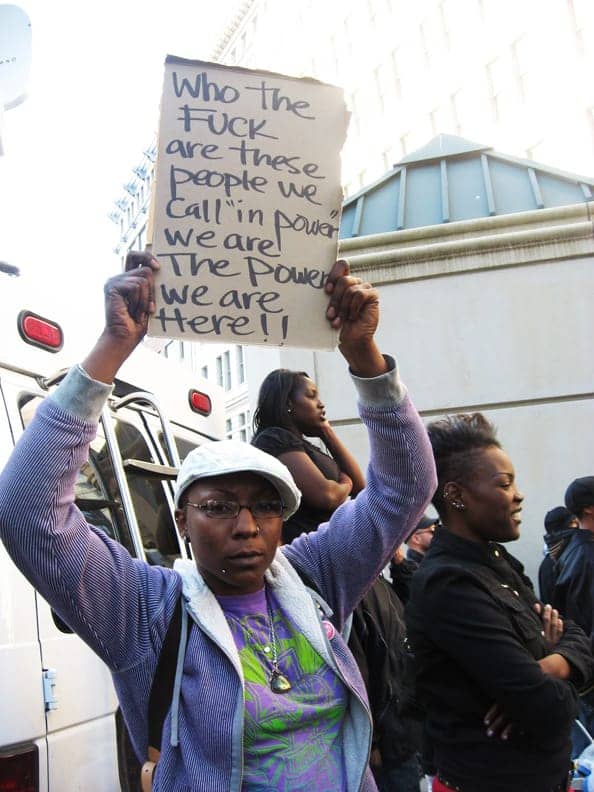 Who the
FUCK
are these
people we
call "in power"
we are!
The power
we are
Here!!